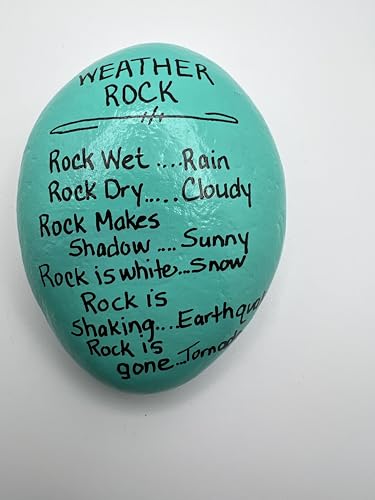 WEATHER
ROCK
Rock Wet ....Rain
Rock Dry..... Cloudy
Rock Makes
Shadow .... Sunny
Rock is white...Snow
Rock is
shaking....Earthqua
Rock is
gone...Tornad